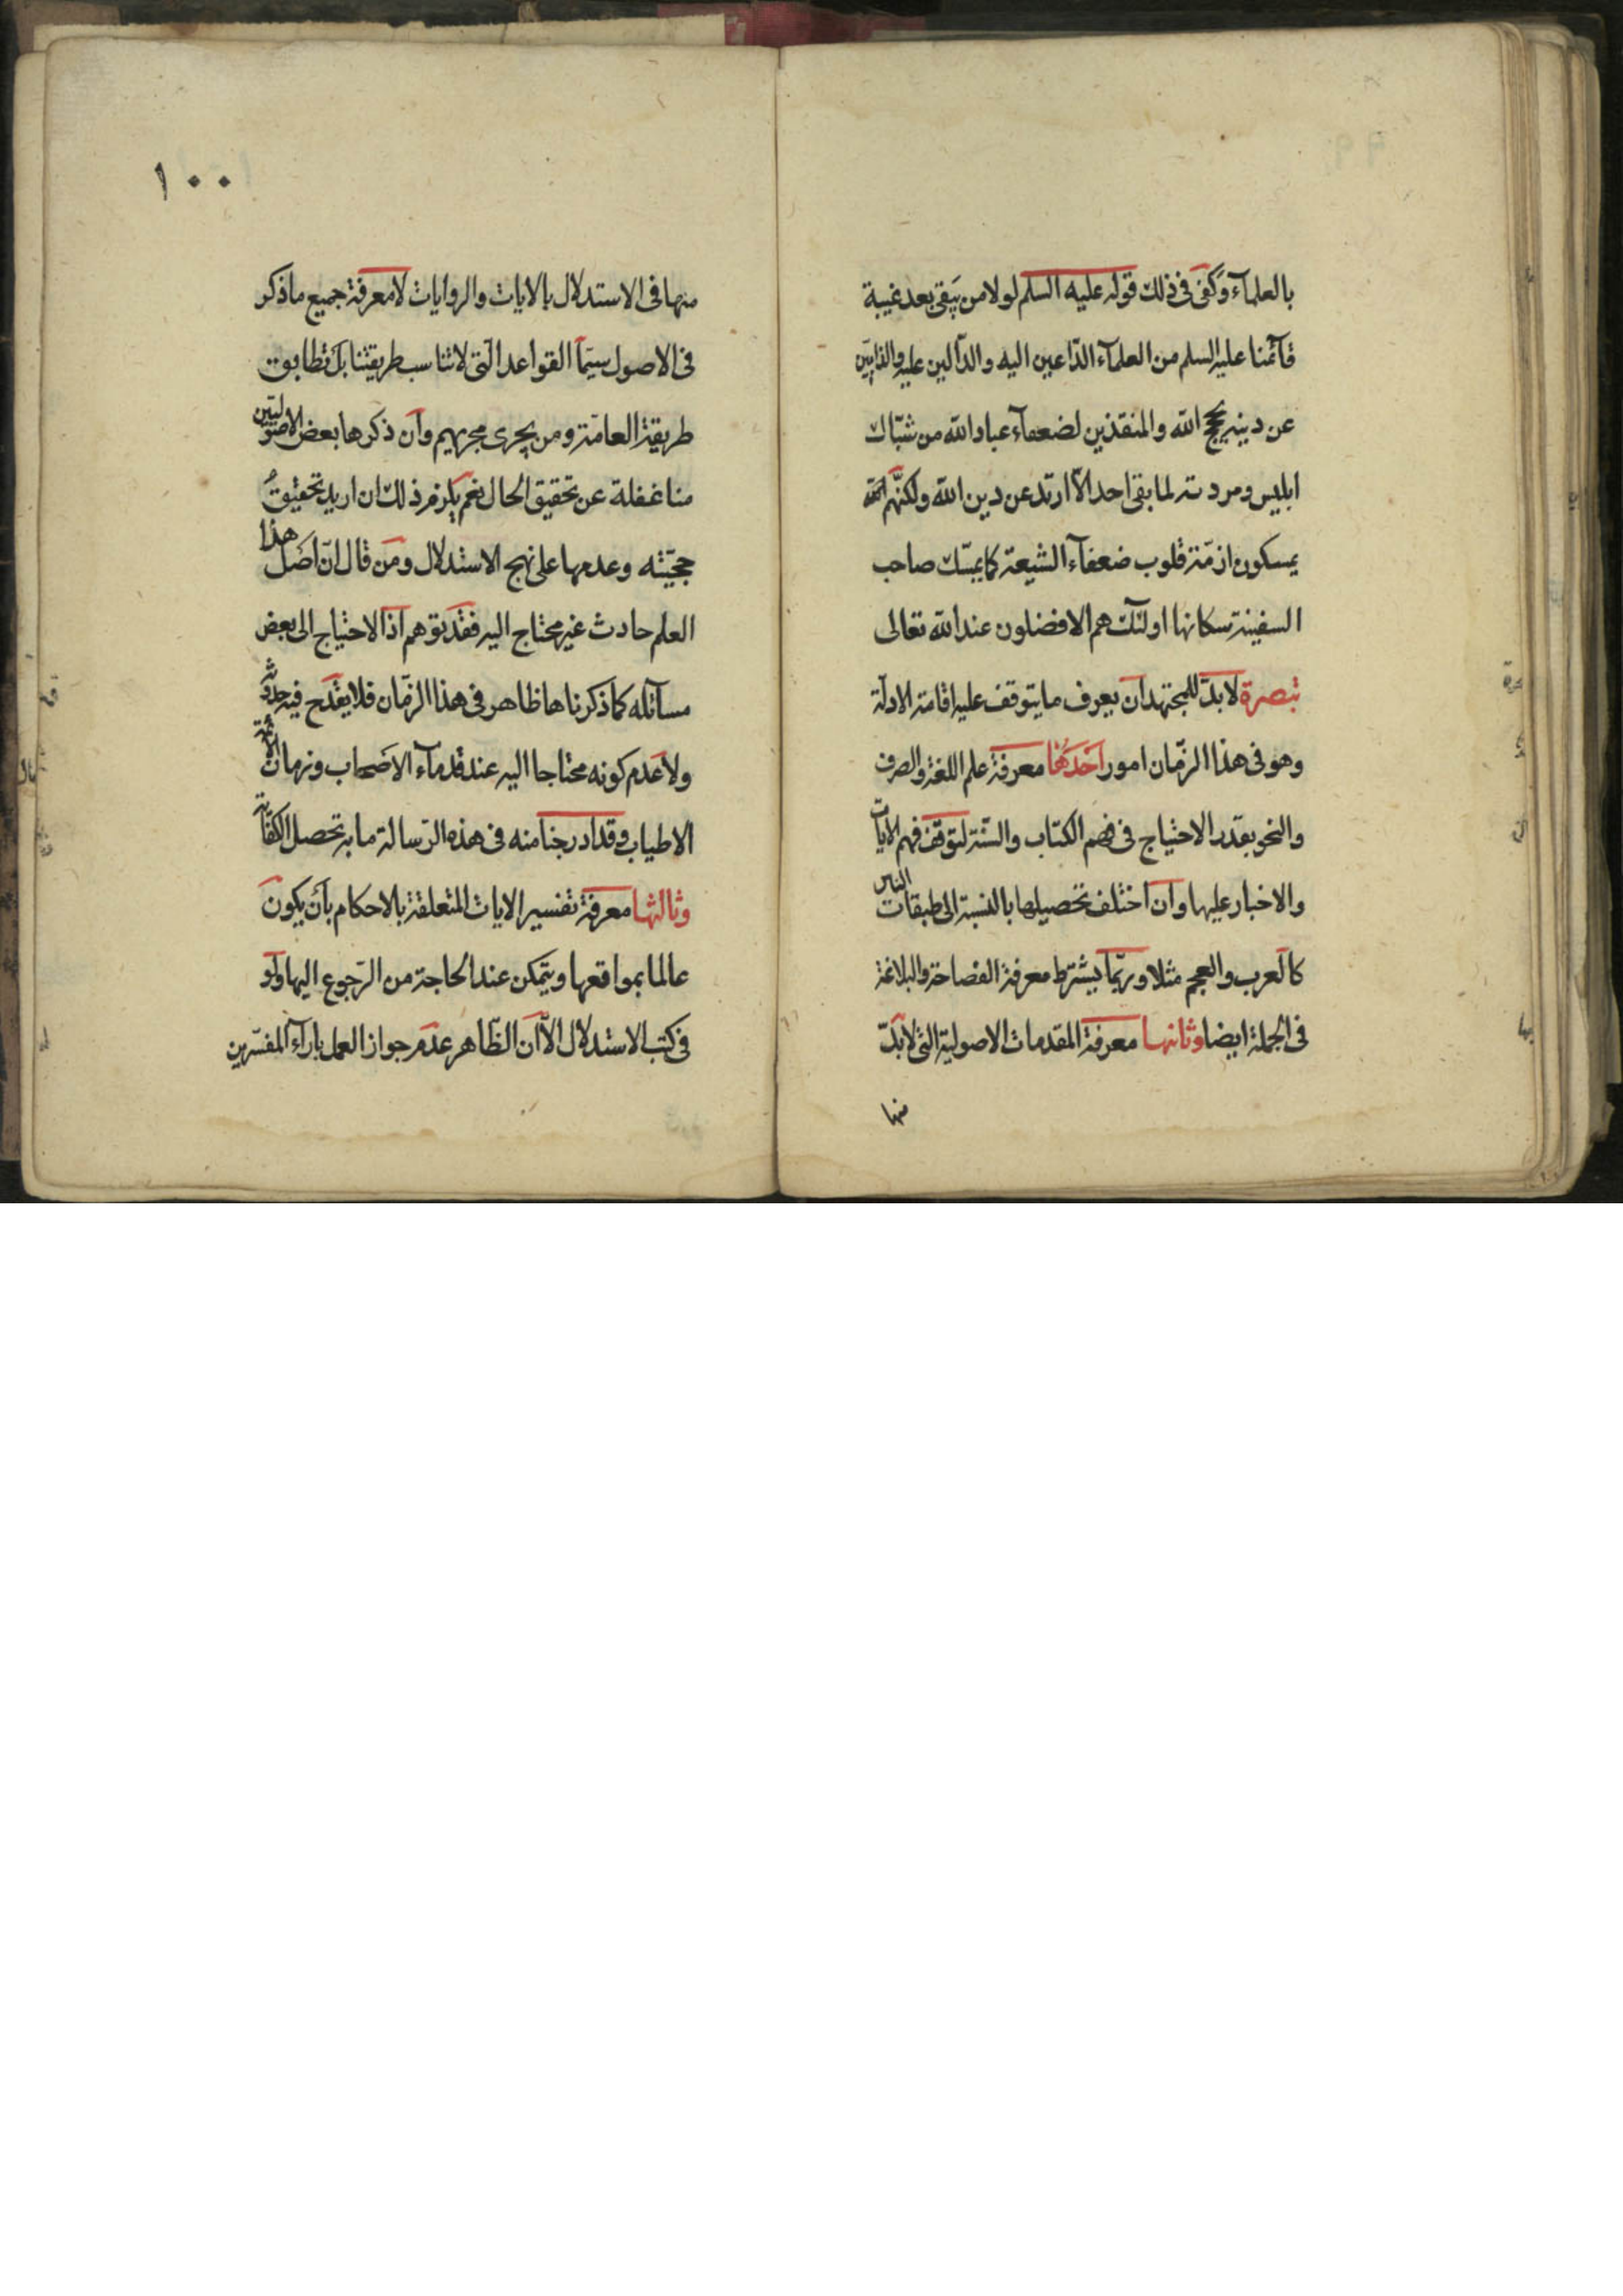 بالعلمآء وكفى فى ذلك قوله عليه السلم لولا من يبقى بعد غيبة
قآئمنا عليه السلم من العلمآء الدّاعين اليه والدّالين عليه والذابّين
عن دينه بحجج الله والمنقذين لضعفآء عباد الله من شباك
ابليس ومردته لما بقى احد الّا ارتد عن دين الله ولكنّهم
يمسكون ازمّة قلوب ضعفآء الشيعة كما يمسك صاحب
السفينة سكانها اولئك هم الافضلون عند الله تعالى
تبصرة لا بدّ للمجتهد ان يعرف ما يتوقف عليه اقامة الادلّة
وهو فى هذا الزّمان امور احدها معرفة علم اللغة والصرف
والنحو بقدر الاحتياج فى فهم الكتاب والسّنّة لتوقّف فهم الايات
والاخبار عليها وان اختلف تحصيلها بالنسبة الى طبقات الناس
كالعرب والعجم مثلا وربّما يشترط معرفة الفصاحة والبلاغة
فى الجملة ايضا وثانيها معرفة المقدمات الاصولية التى لا بدّ
منها
١٠٠
منها فى الاستدلال بالايات والروايات لا معرفة جميع ما ذكر
فى الاصول سيّما القواعد الّتى لا تناسب طريقتنا بل تطابق
طريقة العامّة ومن يجرى مجريهم وان ذكرها بعض الاصوليّين
منا غفلة عن تحقيق الحال نعم يلزم ذلك ان اريد تحقيق
حجيّته وعدمها على نهج الاستدلال ومن قال انّ اصل هذا
العلم حادث غير محتاج اليه فقد توهم اذ الاحتياج الى بعض
مسآئله كما ذكرناها ظاهر فى هذا الزّمان فلا يقدح فيه حدوثه
ولا عدم كونه محتاجا اليه عند قدمآء الاصحاب وزمان الائمّة
الاطياب وقد ادرجنا منه فى هذه الرّسالة ما به تحصل الكفاية
وثالثها معرفة تفسير الايات المتعلقة بالاحكام بأن يكون
عالما بمواقعها ويتمكن عند الحاجة من الرّجوع اليها ولو
فى كتب الاستدلال الّا ان الظّاهر عدم جواز العمل بارآء المفسّرين